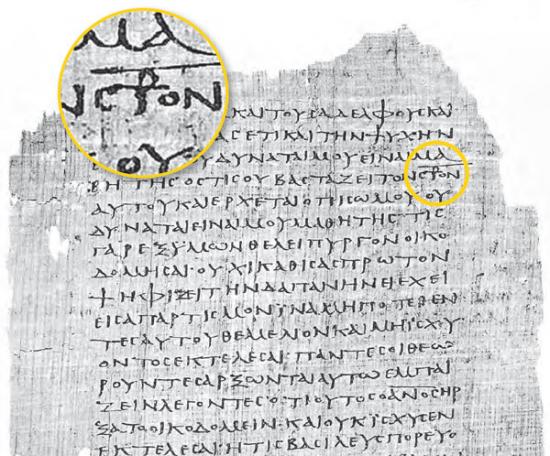 ΜΑ
ΝϹ⳨ΟΝ
ΟΥ
ΚΑΙΤΟΥϹΑΔΕΛΦΟΥϹΚΑΙ
ΑϹΕΤΙΚΑΙΤΗΝΨΥΧΗΝ
ΟΥΔΥΝΑΤΑΙΜΟΥΕΙΝΑΙΜΑ
ΘΗΤΗϹΟϹΤΙϹΟΥΒΑϹΤΑΖΕΙΤΟΝϹ⳨ΟΝ
ΑΥΤΟΥΚΑΙΕΡΧΕΤΑΙΟΠΙϹΩΜΟΥΟΥ
ΔΥΝΑΤΑΙΕΙΝΑΙΜΟΥΜΑΘΗΤΗϹΤΙϹ
ΓΑΡΕΞΥΜΩΝΘΕΛΕΙΠΥΡΓΟΝΟΙΚΟ
ΔΟΜΗϹΑΙ·ΟΥΧΙΚΑΘΙϹΑϹΠΡΩΤΟΝ
ΨΗΦΙΖΕΙΤΗΝΔΑΠΑΝΗΝΗΕΧΕΙ
ΕΙϹΑΠΑΡΤΙϹΜΟΝΙΝΑΜΗΠΟΤΕΘΕΝ
ΤΕϹΑΥΤΟΥΘΕΜΕΛΙΟΝΚΑΙΜΗΪϹΧΥ
ΟΝΤΟϹΕΚΤΕΛΕϹΑΙ·ΠΑΝΤΕϹΟΙΘΕΩ
ΡΟΥΝΤΕϹΑΡΞΩΝΤΑΙΑΥΤΩΕΜΠΑΙ
ΖΕΙΝΛΕΓΟΝΤΕϹΟΤΙΟΥΤΟϹΟΑΝΟϹΗΡ
ΞΑΤΟΟΙΚΟΔΟΜΕΙΝ·ΚΑΙΟΥΚΪϹΧΥϹΕΝ
ΕΚΤΕΛΕϹΑΙ·ΗΤΙϹΒΑϹΙΛΕΥϹΠΟΡΕΥΟ